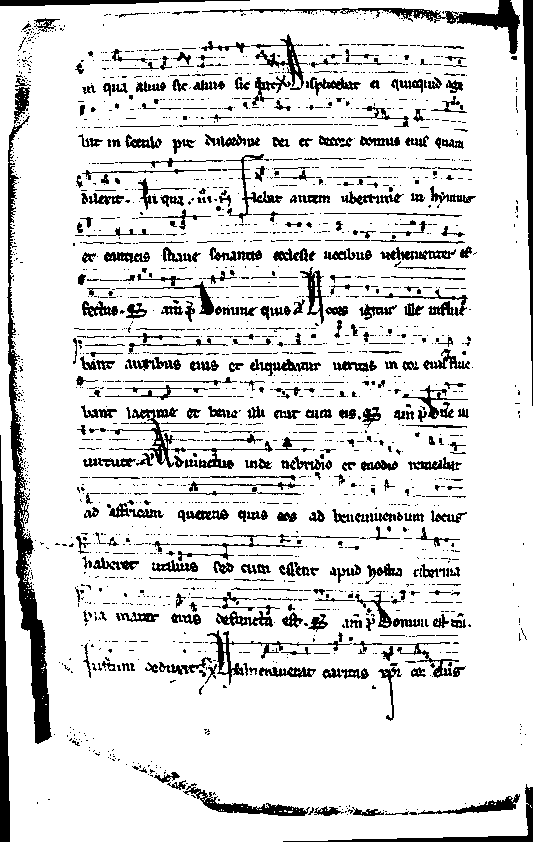 in qua alius sic alius sic ibat Displicebat ei quicquid age
bat in seculo pre dulcedine dei et decore domus eius quam
dilexit. In qua. Flebat autem ubertime in hymnis
et canticis suave sonantis ecclesie vocibus vehementer af
fectus. am Domine quis Voces igitur ille influe
bant auribus eius et eliquebatur veritas in cor eius flue
bant lacrime et bene illi erat cum eis. am Dne in
virtute. Adiunctus inde nebridio et evodio remeabat
ad affricam querens quis eos ad benevivendum locus
haberet utilius sed cum essent apud hostia tiberina
pia mater eius defuncta est. am Domini est
Iustum deduxit Vulneraverat caritas xpi cor eius